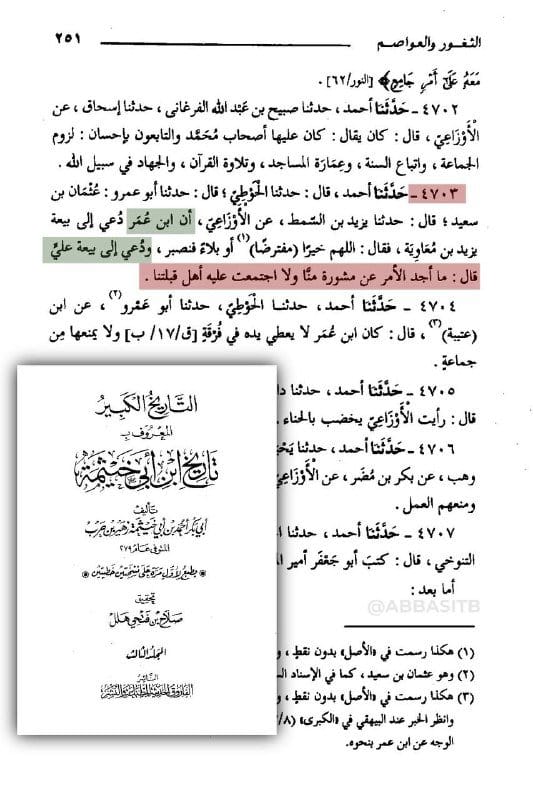 الثغور والعواصم ٢٥١
مَعَهُ عَلَىٰ أَمْرٍ جَامِعٍ﴾ [النور/٦٢] .
٤٧٠٢ - حَدَّثَنَا أحمد، حدثنا صبيح بن عَبْد الله الفرغانى، حدثنا إسحاق، عن
الْأَوْزَاعِيّ، قال: كان يقال: كان عليها أصحاب مُحَمَّد والتابعون بإحسان: لزوم
الجماعة، واتباع السنة، وعِمَارة المساجد، وتلاوة القرآن، والجهاد في سبيل الله.
٤٧٠٣ - حَدَّثَنَا أحمد، قال: حدثنا الْحَوْطِيّ؛ قال: حدثنا أبو عمرو: عُثْمَان بن
سعيد؛ قال: حدثنا يزيد بن السِّمط، عن الْأَوْزَاعِيّ، أن ابن عُمَر دُعي إلى بيعة
يزيد بن مُعَاوِيَة، فقال: اللهم خيرًا (مفترضًا)(١) أو بلاءً فنصبر، ودُعي إلى بيعة عليّ
قال: ما أجد الأمر عن مشورة منَّا ولا اجتمعت عليه أهل قبلتنا.
٤٧٠٤ - حَدَّثَنَا أحمد، حدثنا الْحَوْطِي، حدثنا أبو عَمْرو(٢)، عن ابن
(عتيبة)(٣)، قال: كان ابن عُمَر لا يعطي يده في فُرْقَةٍ [ق/١٧/ب] ولا يمنعها مِن
جماعةٍ.
٤٧٠٥ - حَدَّثَنَا أحمد، حدثنا
قال: رأيت الْأَوْزَاعِيّ يخضب بالحناء.
٤٧٠٦ - حَدَّثَنَا أحمد، حدثنا
وهب، عن بكر بن مُضَر، عن الْأَوْزَاعِيّ
ومنعهم العمل.
٤٧٠٧ - حَدَّثَنَا أحمد، حدثنا
التنوخي، قال: كتبَ أبو جَعْفَر أمير
أما بعد:
@ABBASITB
(١) هكذا رسمت في «الأصل» بدون نقط،
(٢) وهو عثمان بن سعيد، كما في الإسناد
(٣) هكذا رسمت في «الأصل» بدون نقط،
وانظر الخبر عند البيهقي في «الكبرى» (٨/
الوجه عن ابن عمر بنحوه.
التاريخ الكبير
المعروف بـ
تاريخ ابن أبي خيثمة
تأليف
أبي بكر أحمد بن أبي خيثمة زهير بن حرب
المتوفى عام ٢٧٩
يطبع لأول مرة على نسختين خطيتين
تحقيق
صلاح بن فتحي هلل
المجلد الثالث
الناشر
الفاروق الحديثة للطباعة والنشر